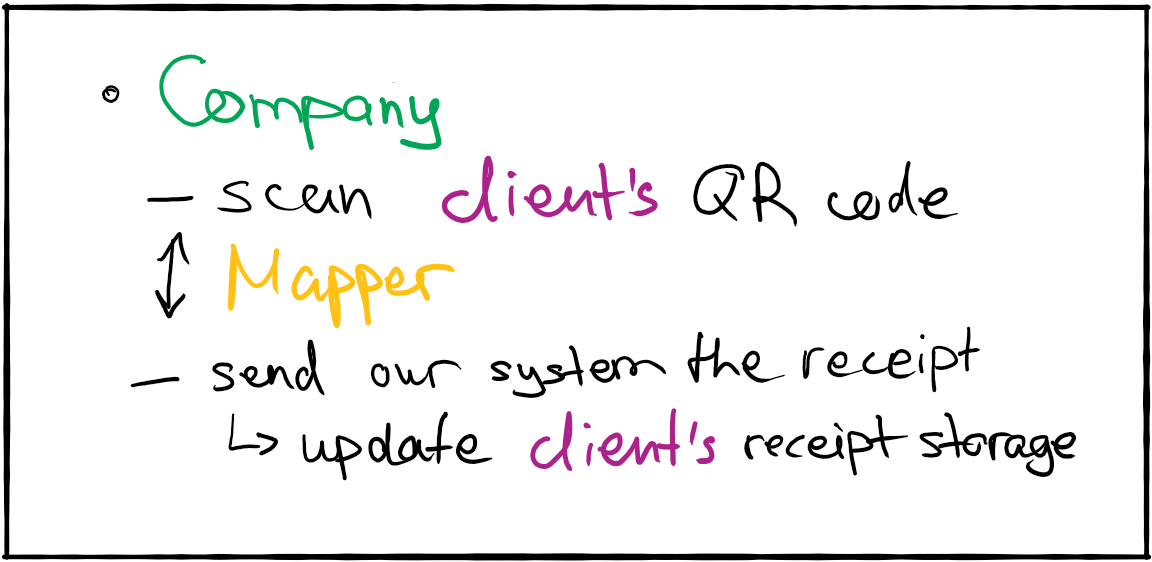 • Company
– scan client's QR code
↕ Mapper
– send our system the receipt
↳ update client's receipt storage